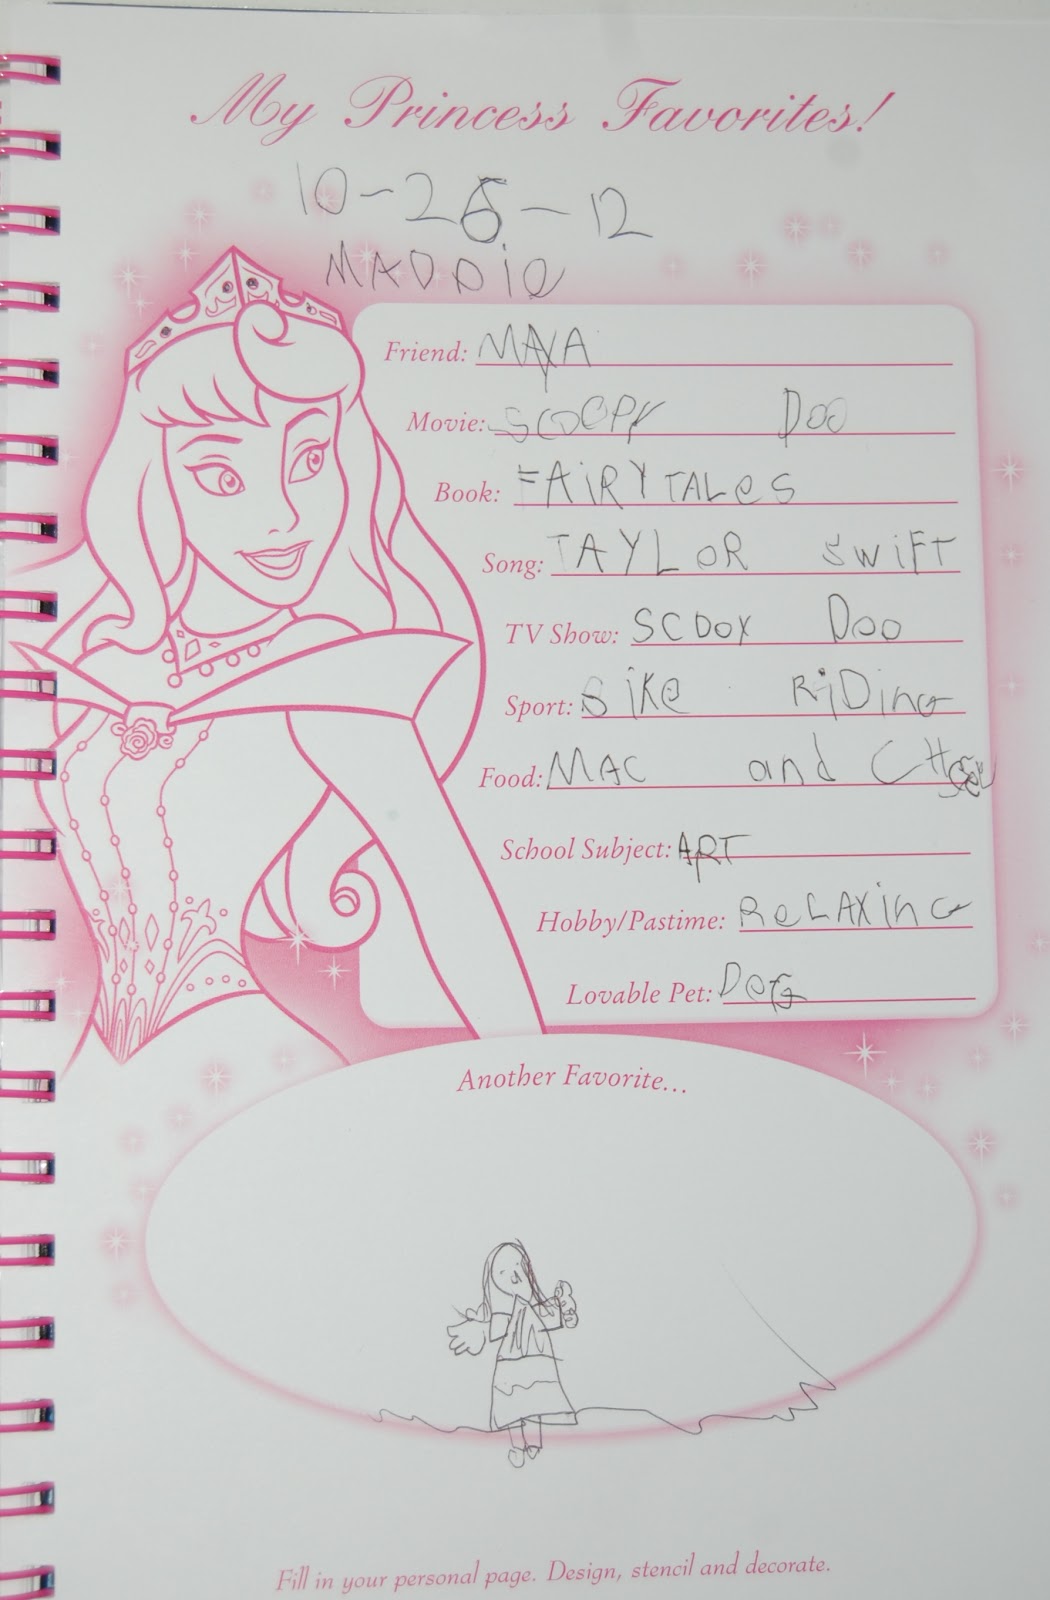 My Princess Favorites!
10-26-12
MADDie
Friend: MAYA
Movie: SCOOPY DOO
Book: FAiRY TALeS
Song: TAYLoR SWiFT
TV Show: SCOOY Doo
Sport: BiKe RiDinG
Food: MAC and
School Subject: ART
Hobby/Pastime: ReLAXinG
Lovable Pet: DoG
Another Favorite...
Fill in your personal page. Design, stencil and decorate.